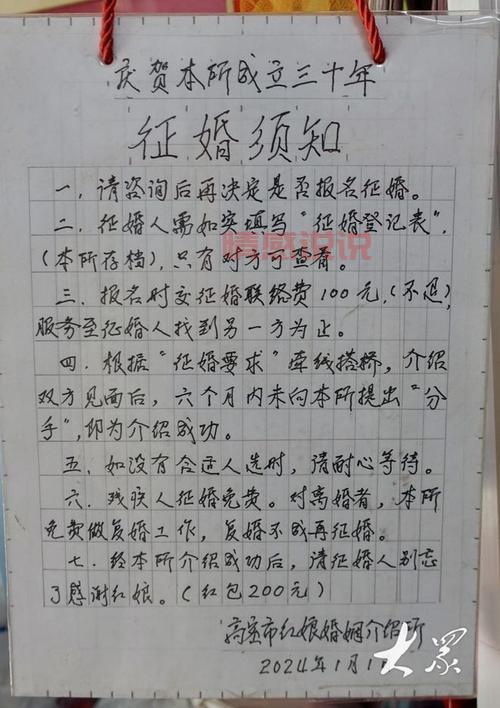 庆贺本所成立三十年
征婚须知
一、请咨询后再决定是否报名征婚。
二、征婚人需如实填写“征婚登记表”,
(本所存档),只有对方可查看。
情感说说
三、报名时交征婚联络费100元,(不退)
服务至征婚人找到另一方为止。
四、根据“征婚要求”牵线搭桥,介绍
双方见面后,六个月内未向本所提出“分
手”,即为介绍成功。
五、如没有合适人选时,请耐心等待。
六、残疾人征婚免费。对离婚者,本所
免费做复婚工作,复婚不成再征婚。
七、经本所介绍成功后,请征婚人别忘
了感谢红娘。(红包200元)
高密市红娘婚姻介绍所
2024年1月1
大众